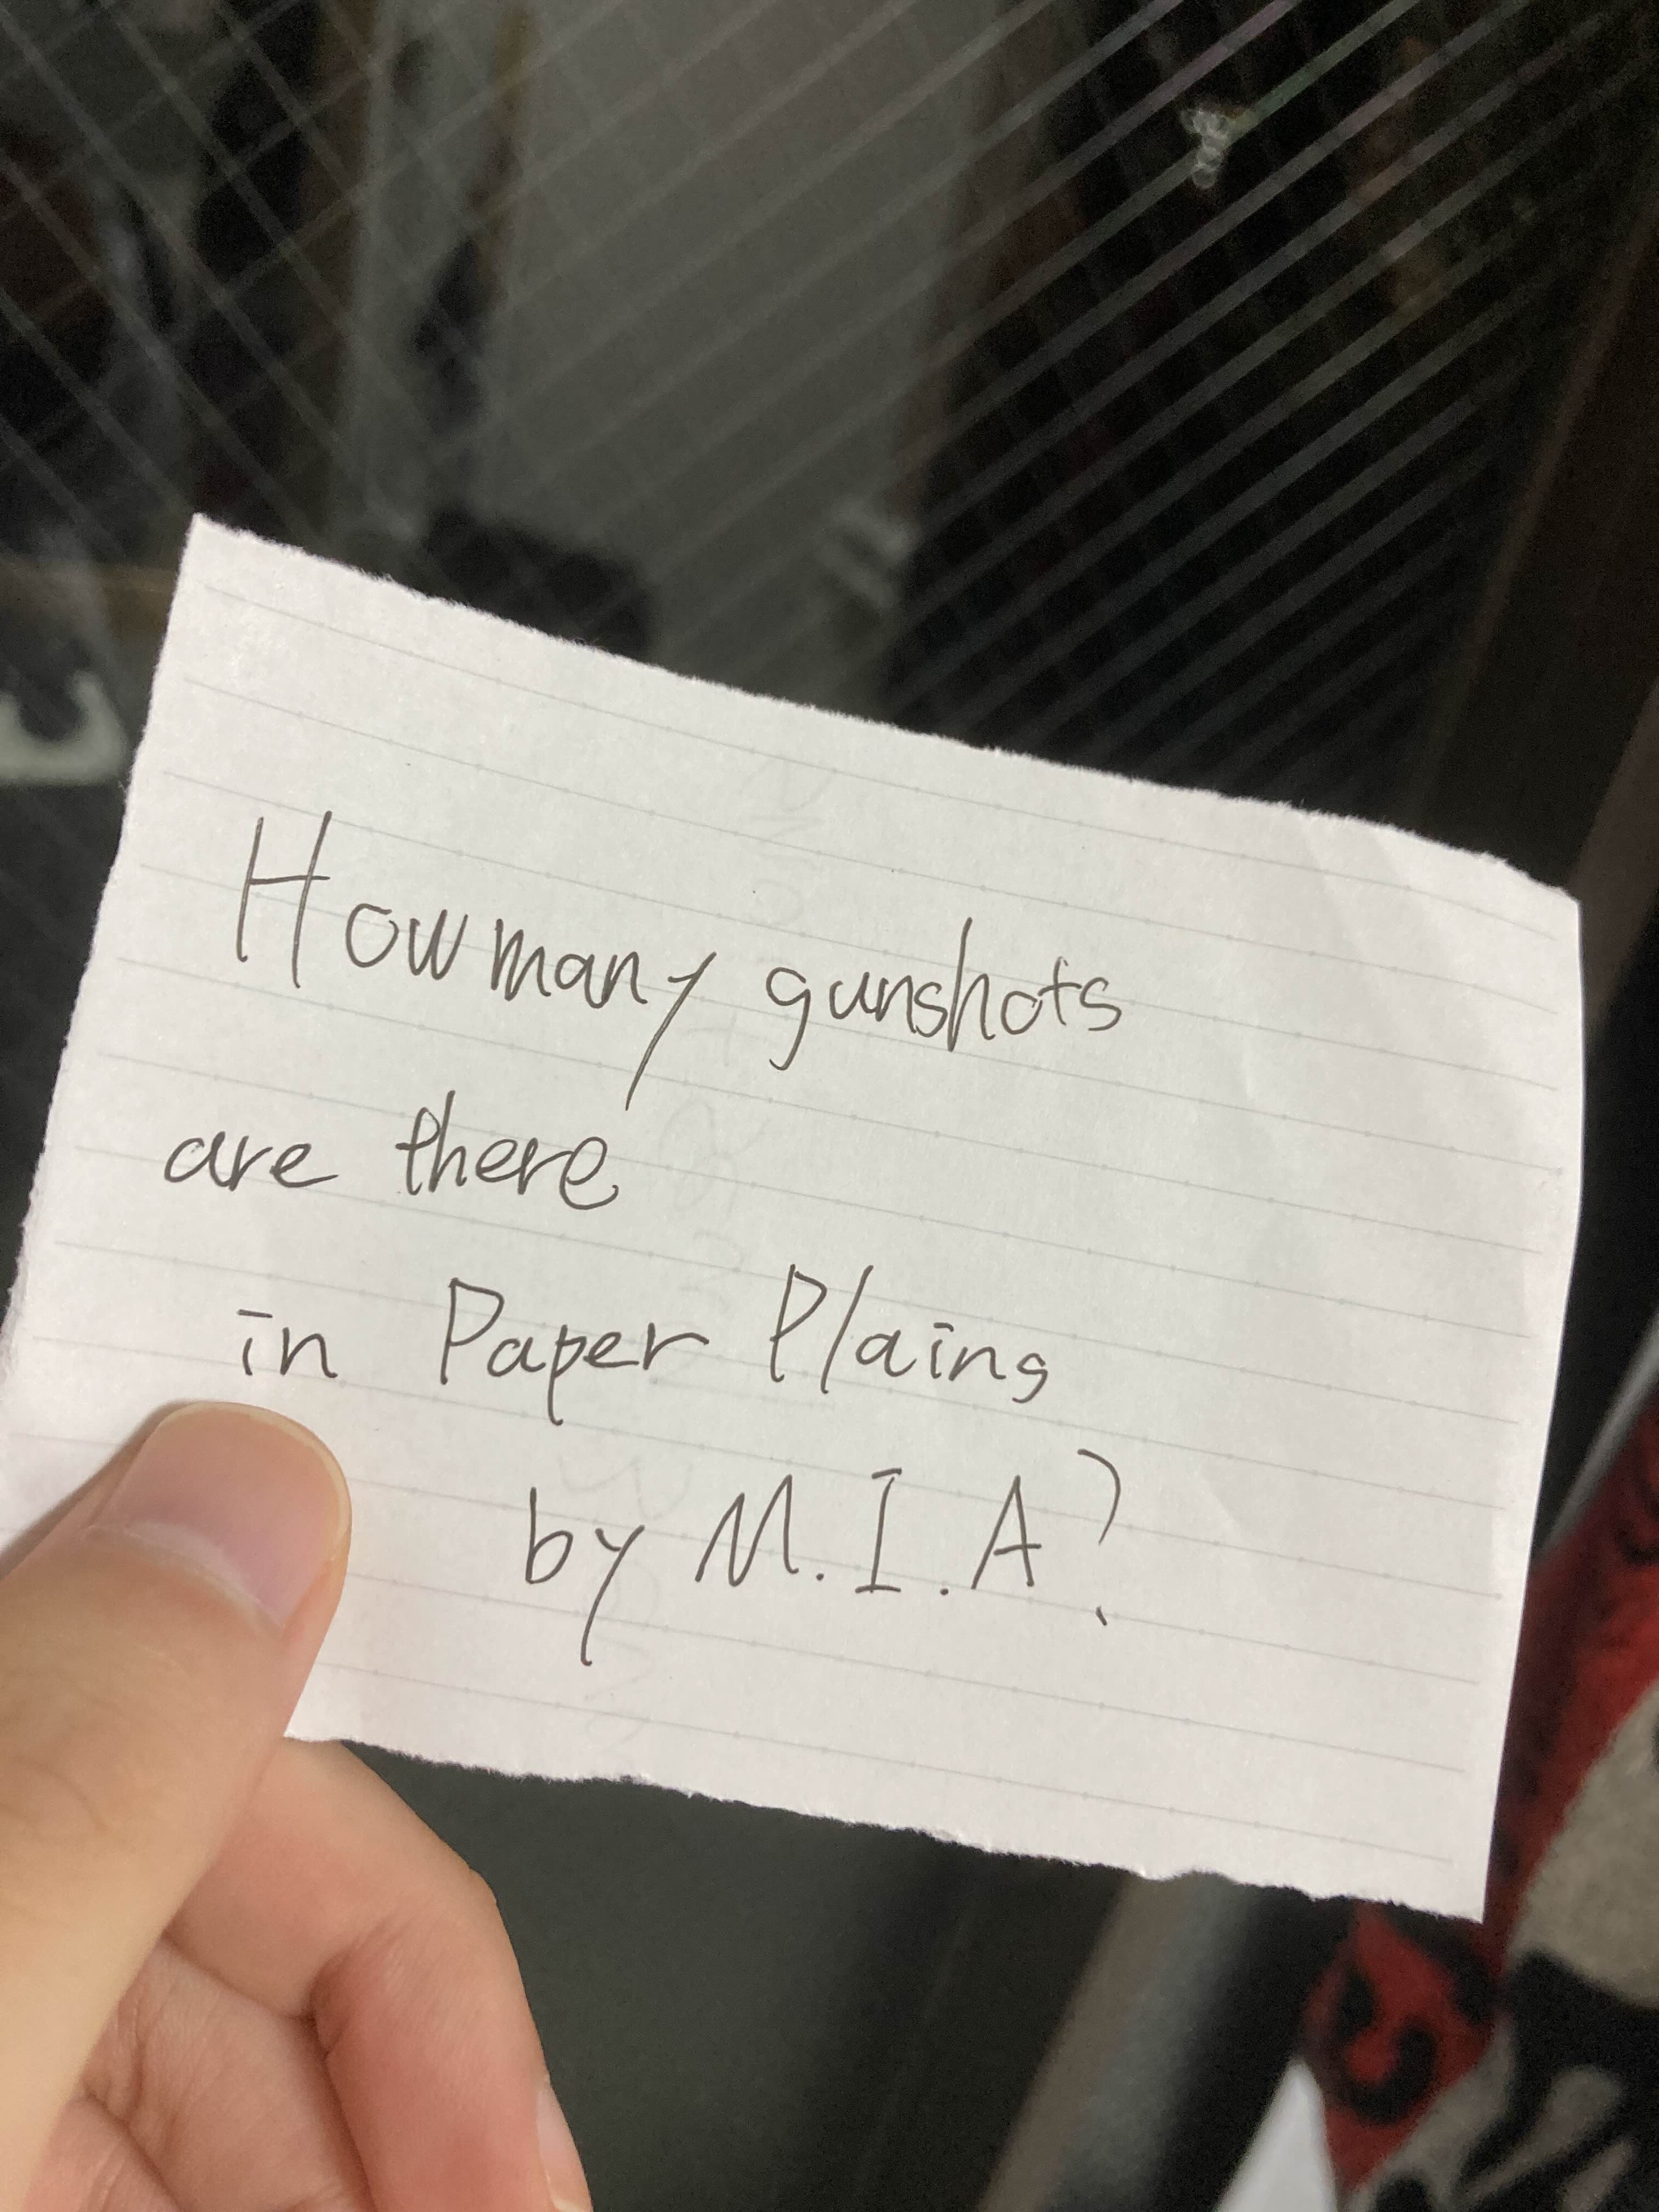 How many gunshots
are there
in Paper Plains
by M.I.A?